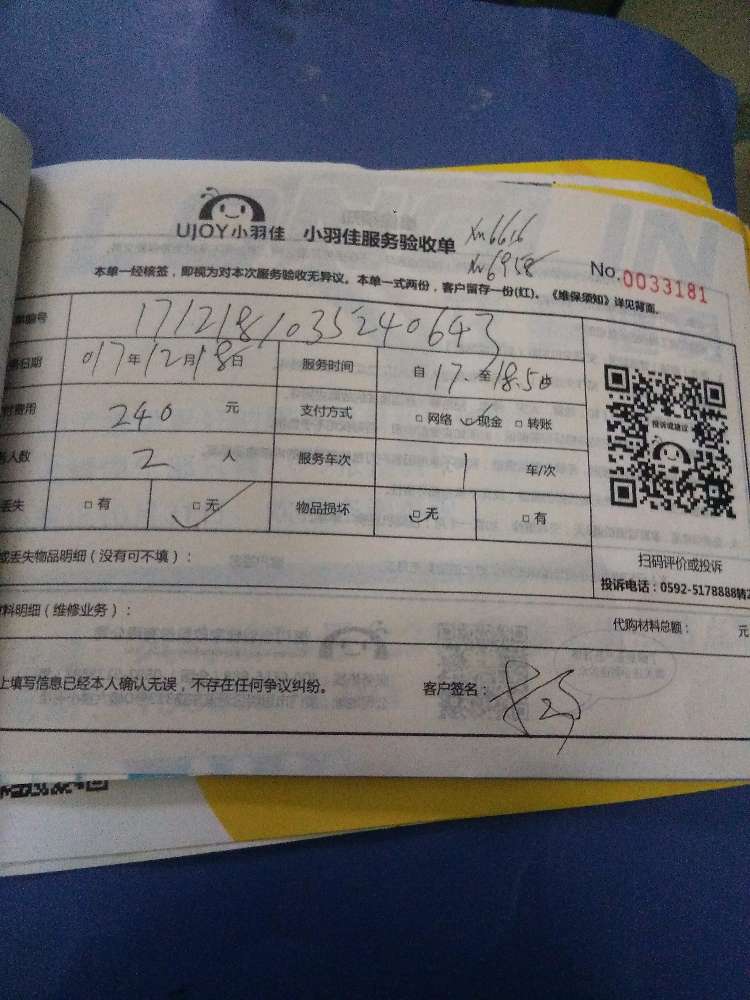 UJOY小羽佳 小羽佳服务验收单
Xm6616
Xm6958
No.0033181
本单一经核签,即视为对本次服务验收无异议。本单一式两份,客户留存一份(红)。《维保须知》详见背面。
编号 1712181035240643
日期 017年12月18日 服务时间 自17.至18.50
费用 240 元 支付方式 □网络 ☑现金 □转账
人数 2 人 服务车次 1 车/次
丢失 □有 ☑无 物品损坏 ☑无 □有
投诉或建议
扫码评价或投诉
投诉电话:0592-5178888转2
或丢失物品明细(没有可不填):
料明细(维修业务): 代购材料总额: 元
上填写信息已经本人确认无误,不存在任何争议纠纷。 客户签名: